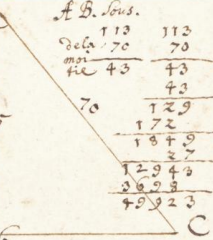 A B. Sous.
113 113
de la 70 70
moi
tie 43 43
43
70 129
172
1849
27
12943
3698
49923
C